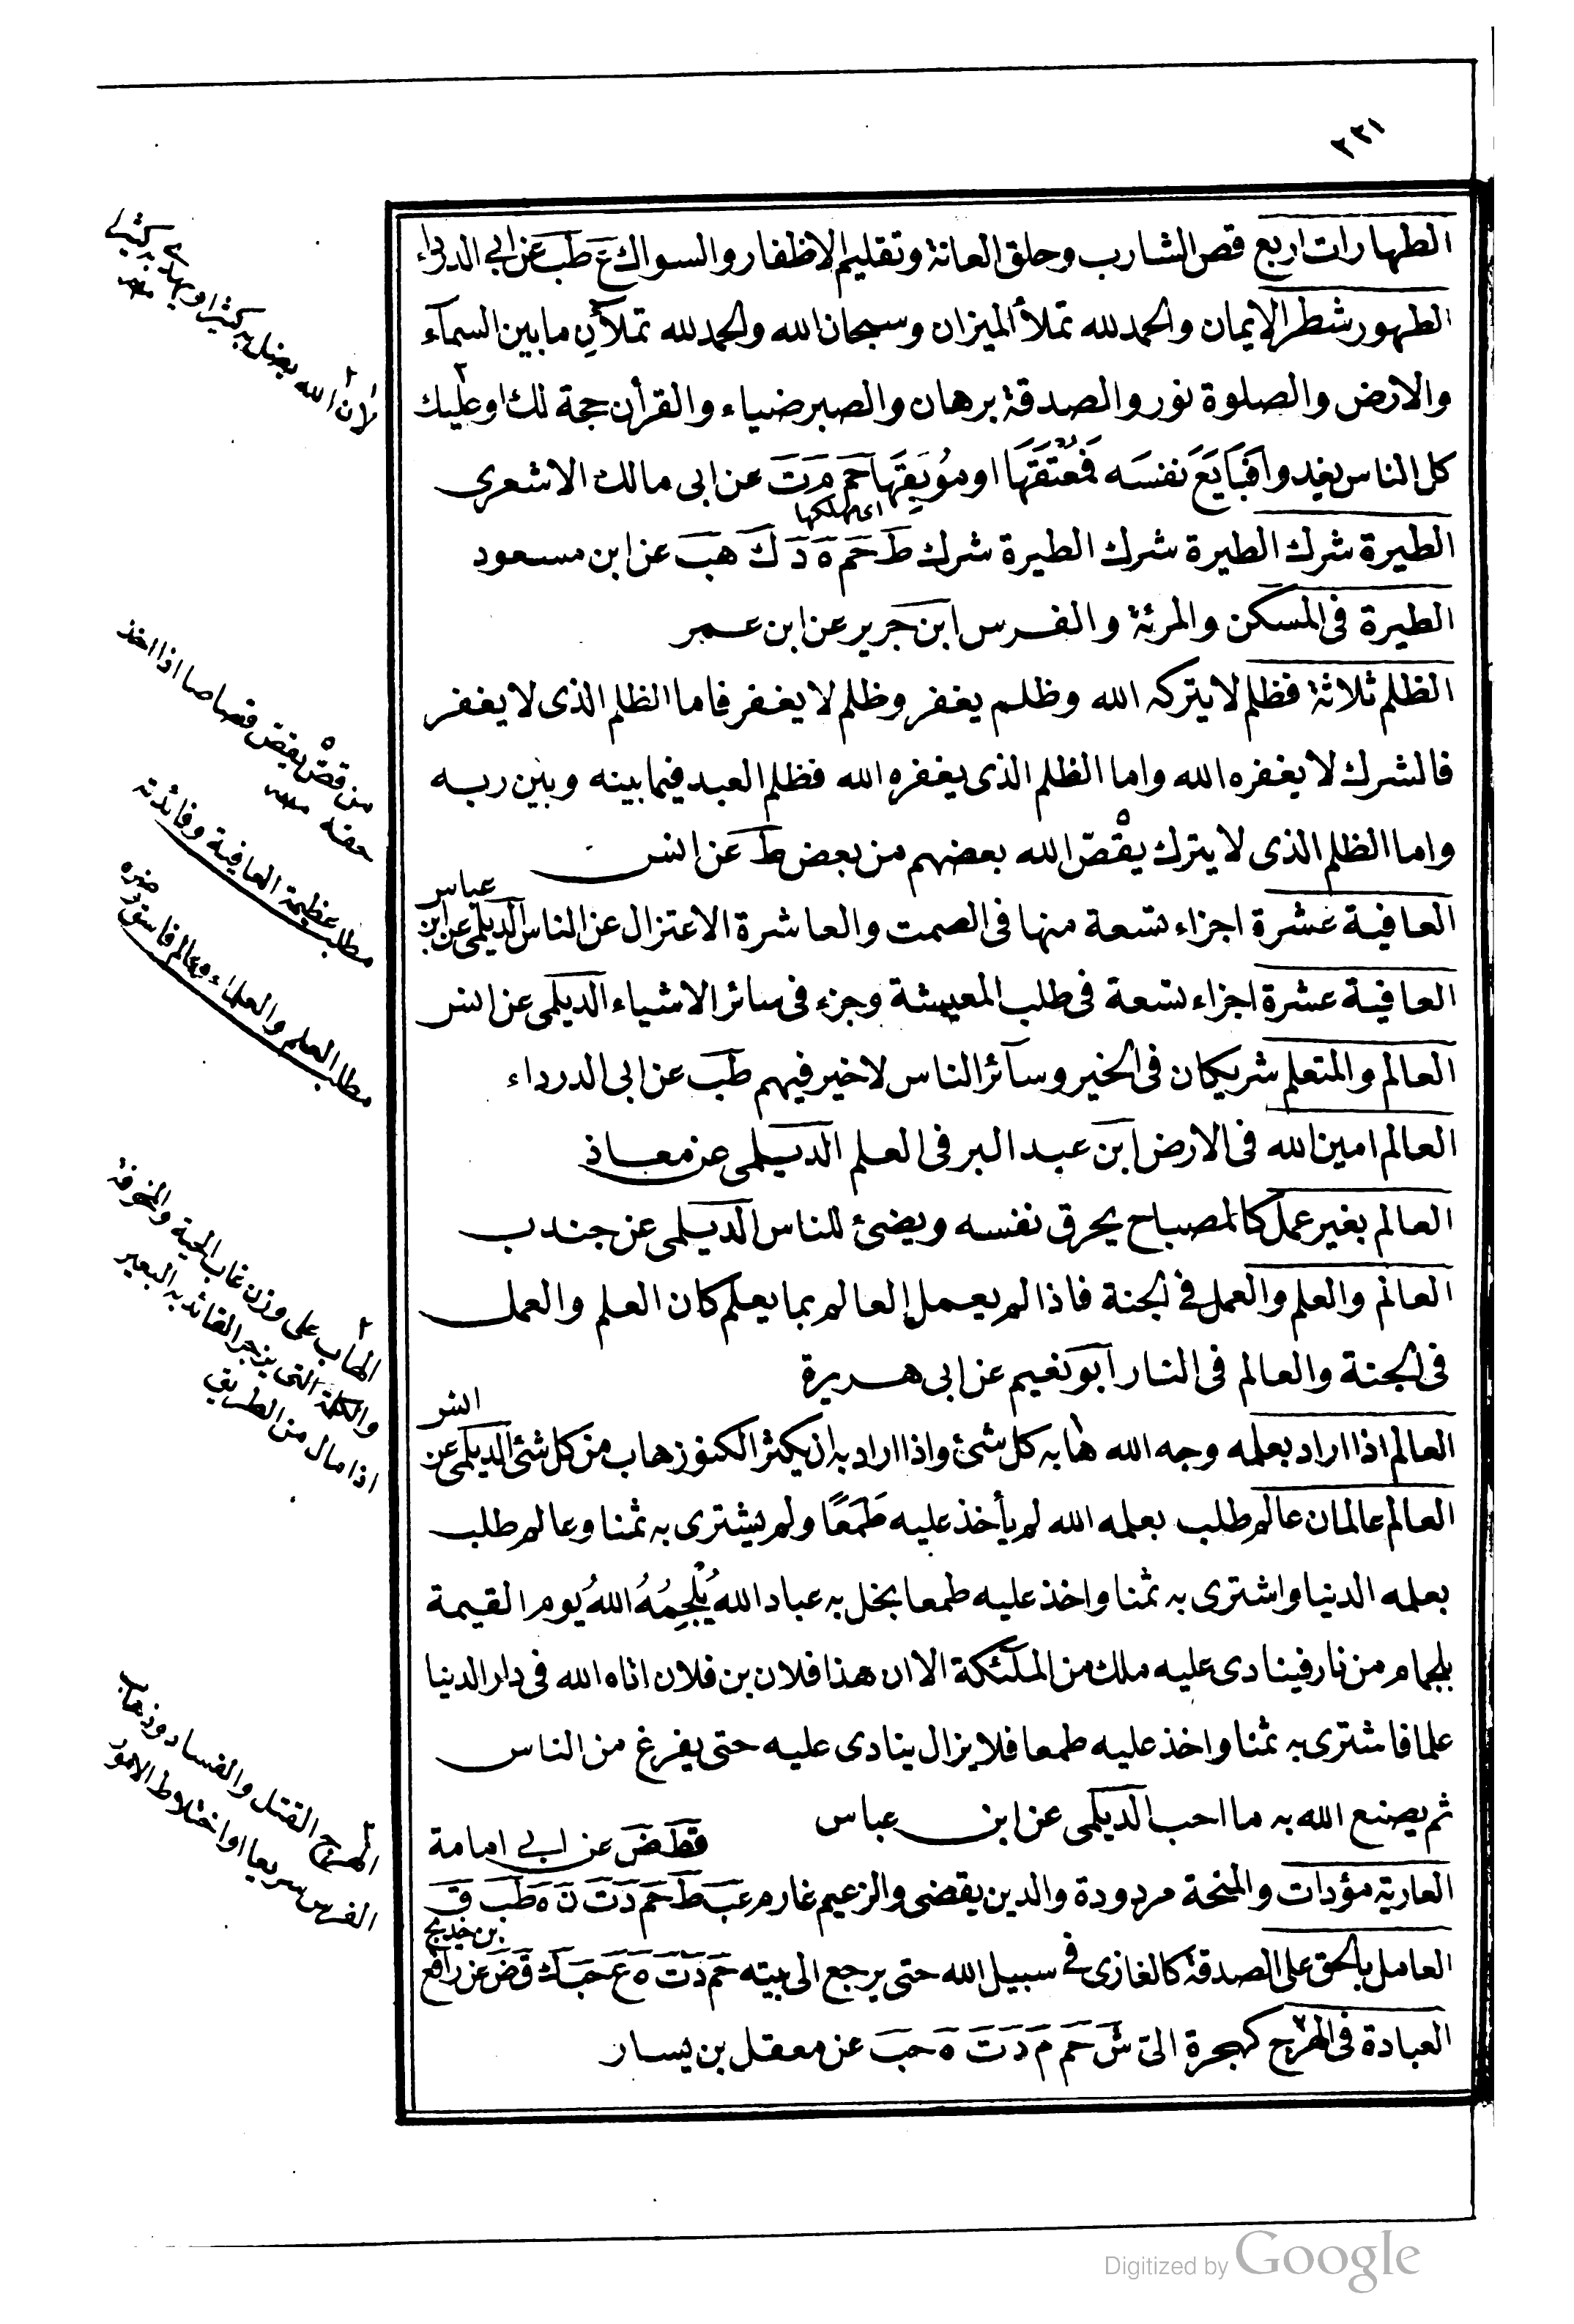 ٢٢١
الطهارات اربع قص الشارب وحلق العانة وتقليم الاظفار والسواك ع طب عن ابى الدرداء
الطهور شطر الايمان والحمد لله تملأ الميزان وسبحان الله والحمد لله تملأن ما بين السمآء
والارض والصلوة نور والصدقة برهان والصبر ضياء والقرأن حجة لك او عليك
كل الناس يغدوا فبايع نفسه فمعتقها او موبقها حم م ت عن ابى مالك الاشعرى
اى مهلكها
الطيرة شرك الطيرة شرك الطيرة شرك ط حم ه د ك هب عن ابن مسعود
الطيرة فى المسكن والمرئة والفرس ابن جرير عن ابن عمر
الظلم ثلاثة فظلم لا يتركه الله وظلم يغفر وظلم لا يغفر فاما الظلم الذى لا يغفر
فالشرك لا يغفره الله واما الظلم الذى يغفره الله فظلم العبد فيما بينه وبين ربه
واما الظلم الذى لا يترك يقصّ الله بعضهم من بعض ط عن انس
العافية عشرة اجزاء تسعة منها فى الصمت والعاشرة الاعتزال عن الناس الديلمى عن ابن
عباس
العافية عشرة اجزاء تسعة فى طلب المعيشة وجزء فى سائر الاشياء الديلمى عن انس
العالم والمتعلم شريكان فى الخير وسآئر الناس لا خير فيهم طب عن ابى الدرداء
العالم امين الله فى الارض ابن عبد البر فى العلم الديلمى عن معاذ
العالم بغير عمل كالمصباح يحرق نفسه ويضئ للناس الديلمى عن جندب
العالم والعلم والعمل فى الجنة فاذا لم يعمل العالم بما يعلم كان العلم والعمل
فى الجنة والعالم فى النار ابو نعيم عن ابى هريرة
العالم اذا اراد بعلمه وجه الله هابه كل شئ واذا اراد به ان يكثر الكنوز هاب من كل شئ الديلمى عن
انس
العالم عالمان عالم طلب بعلمه الله لم يأخذ عليه طمعًا ولم يشترى به ثمنا وعالم طلب
بعلمه الدنيا واشترى به ثمنا واخذ عليه طمعا بخل به عباد الله يُلْجِمُهُ اللهُ يوم القيمة
بلجام من نار فينادى عليه ملك من الملئكة الا ان هذا فلان بن فلان اتاه الله فى دار الدنيا
علما فاشترى به ثمنا واخذ عليه طمعا فلا يزال ينادى عليه حتى يفرغ من الناس
ثم يصنع الله به ما احب الديلمى عن ابن عباس
قط ض عن ابى امامة
العارية مؤدات والمنحة مردودة والدين يقضى والزعيم غارم عب ط حم د ت ن ه طب ق
العامل بالحق على الصدقة كالغازى فى سبيل الله حتى يرجع الى بيته حم د ت ه ع حب ك ق ض عن رافع
بن خديج
العبادة فى الهرج كهجرة الىّ ش حم م د ت ه حب عن معقل بن يسار
لان الله يضل به كثيرا ويهدى به كثيرا
من قصّ يقصّ قصاصا اذا اخذ
حقه
مطلب عظيمة العافية وفائدته
مطلب العلم والعلماء وعالم فاسق و ضره
الهاب على وزن غاب الحية والمخوفة
والكلمة التى يزجر القائد به البعير
اذا مال من الطريق
الهرج القتل والفساد وذهاب
الفرس سريعا او اختلاط الامور
Digitized by Google